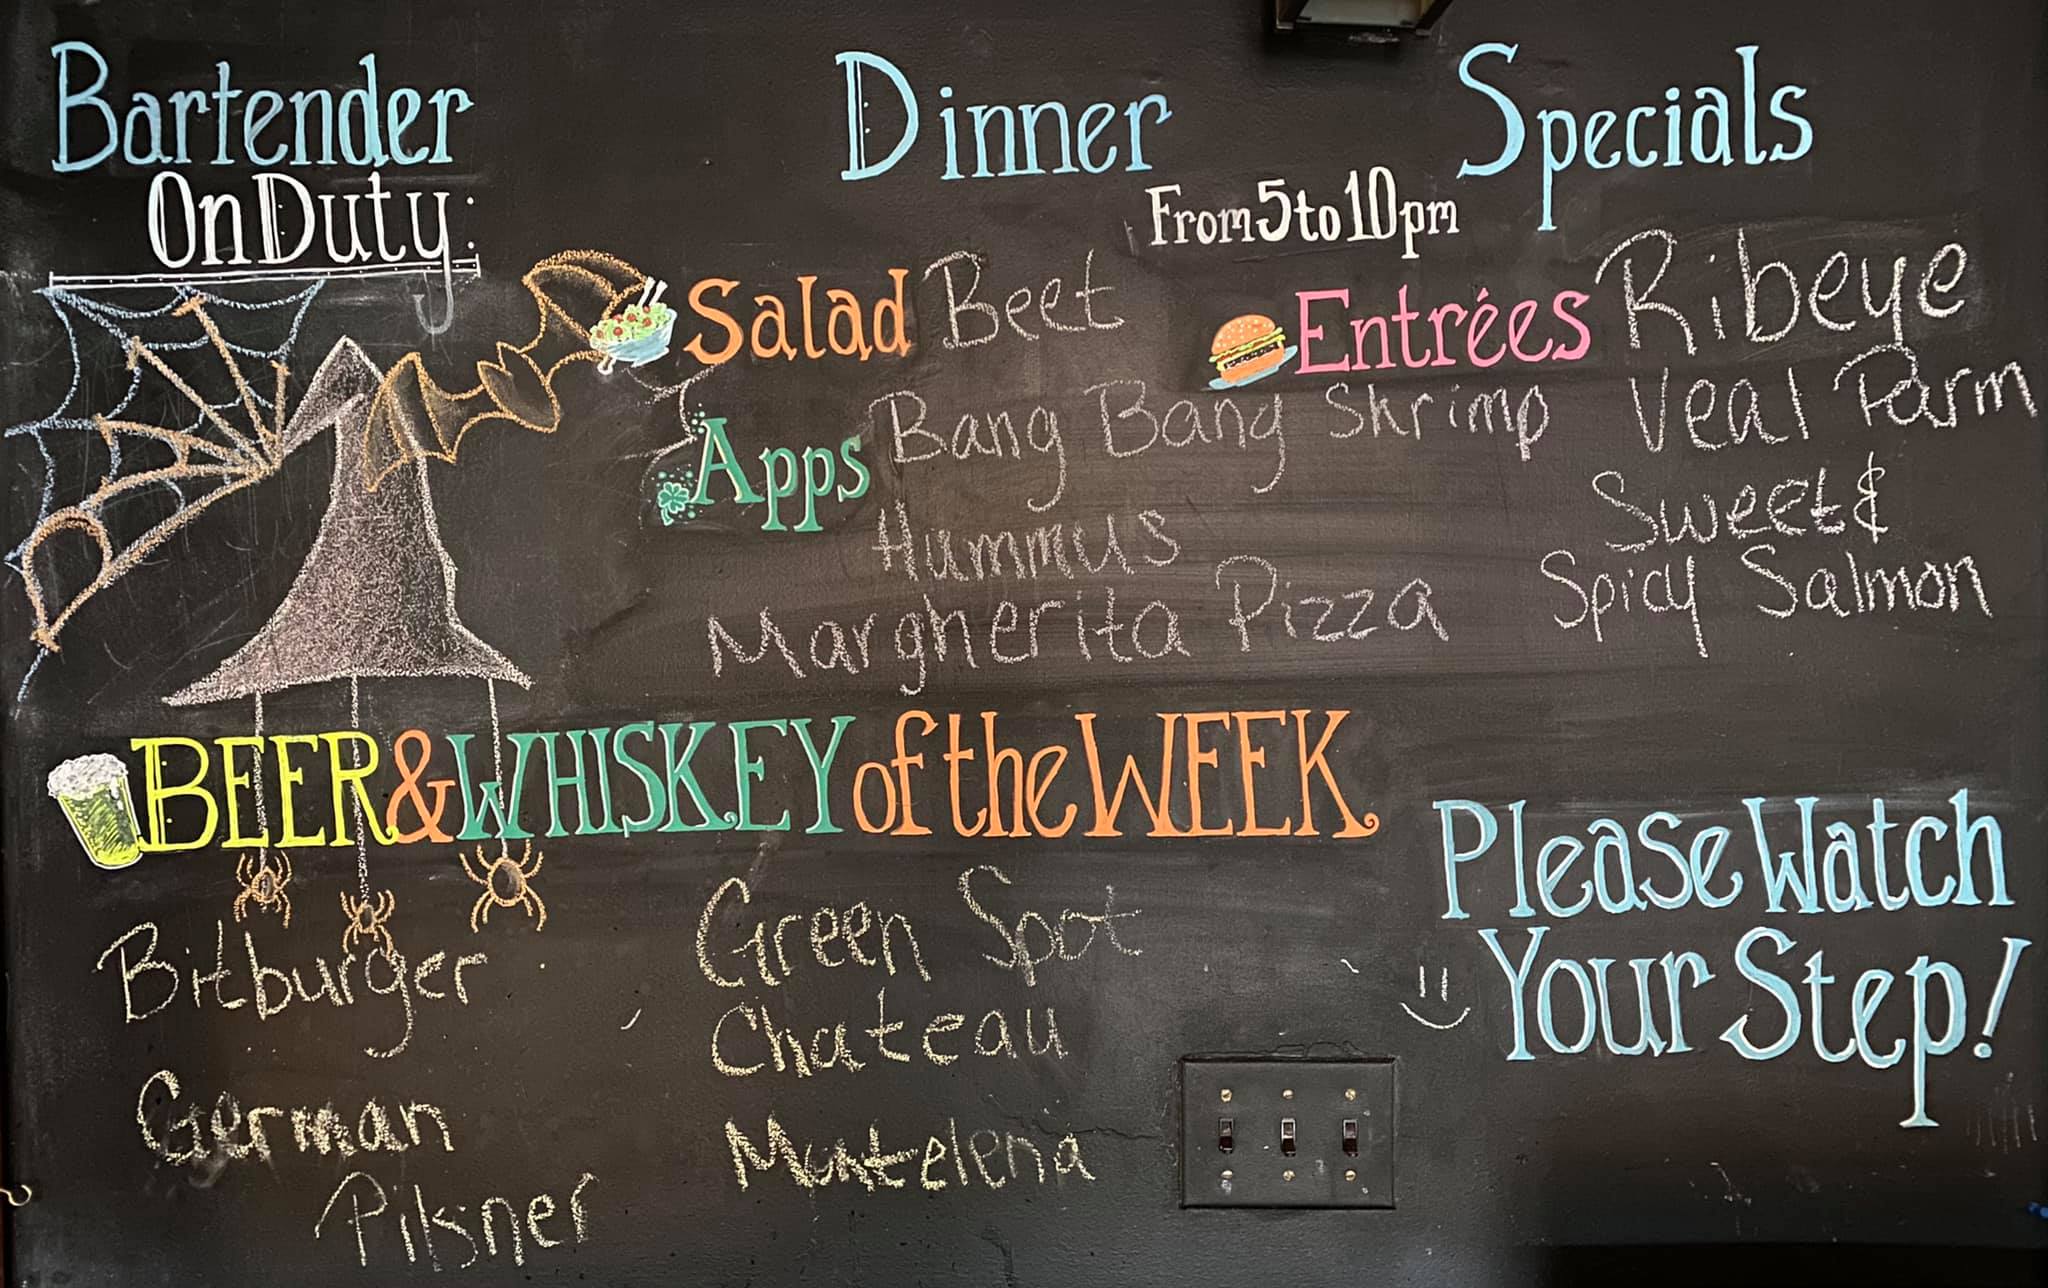 Bartender
On Duty:
Dinner Specials
From 5 to 10pm
Salad Beet
Apps Bang Bang Shrimp
Hummus
Margherita Pizza
Entrées Ribeye
Veal Parm
Sweet &
Spicy Salmon
BEER & WHISKEY of the WEEK
Bitburger
German
Pilsner
Green Spot
Chateau
Montelena
Please Watch
Your Step!